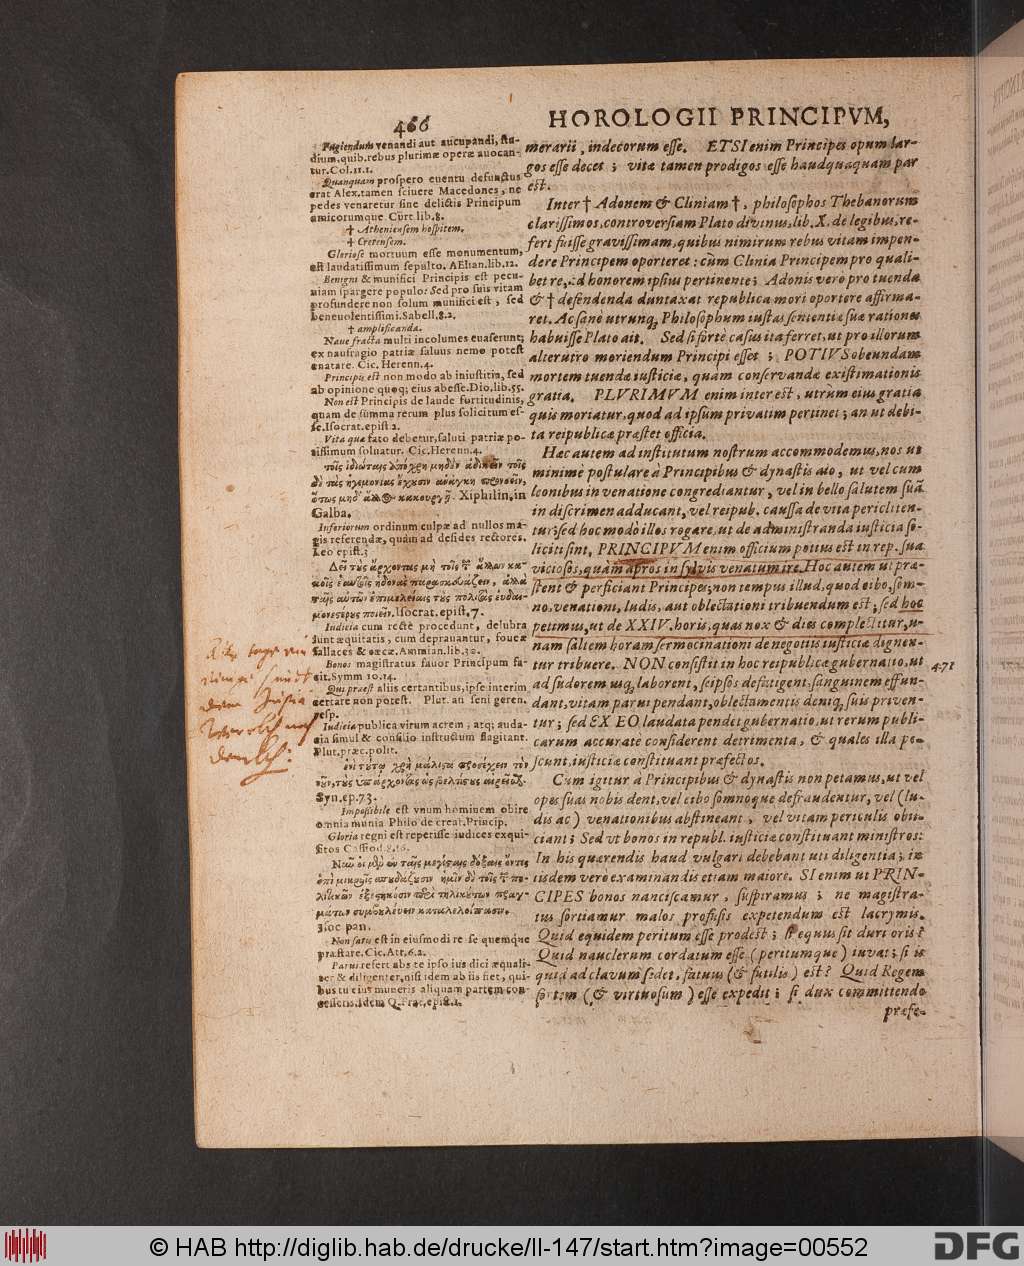 466
HOROLOGII PRINCIPVM,
Fugiendum venandi aut aucupandi, stu-
dium, quib. rebus plurimæ operæ auocan-
tur. Col. 11. 1.
Quanquam prospero euentu defunctus
erat Alex. tamen sciuere Macedones, ne
pedes venaretur sine delictis Principum
amicorumque. Curt. lib. 8.
† Atheniensem hospitem.
† Cretensem.
Gloriose mortuum esse monumentum,
est laudatissimum sepulto. AElian. lib. 12.
Benigni & munifici Principis est pecu-
niam spargere populo: Sed pro suis vitam
profundere non solum munifici est, sed
beneuolentissimi. Sabell. 8. 2.
† amplificanda.
Naue fracta multi incolumes euaserunt;
ex naufragio patriæ saluus nemo potest
enatare. Cic. Herenn. 4.
Principis est non modo ab iniustitia, sed
ab opinione quoq; eius abesse. Dio. lib. 55.
Non est Principis de laude fortitudinis,
quam de summa rerum plus solicitum es-
se. Isocrat. epist 2.
Vita quæ fato debetur, saluti patriæ po-
tissimum soluatur. Cic. Herenn. 4.
Xiphilin. in
Galba.
Inferiorum ordinum culpæ ad nullos ma-
gis referendæ, quàm ad desides rectores.
Leo epist. 3
Isocrat. epist. 7.
Iudicia cum rectè procedunt, delubra
sunt æquitatis, cum deprauantur, foueæ
fallaces & cæcæ. Ammian. lib. 30.
Bonos magistratus fauor Principum fa-
cit. Symm 10. 14.
Qui præest aliis certantibus, ipse interim
certare non potest. Plut. an seni geren.
resp.
Iudicia publica virum acrem, atq; auda-
cia simul & consilio instructum flagitant.
Plut. præc. polit.
Syn. ep. 73.
Impossibile est vnum hominem obire
omnia munia Philo de creat. Princip.
Gloria regni est reperisse iudices exqui-
sitos Cassiod. 8. 16.
Isoc pan.
Non satis est in eiusmodi re se quemque
præstare. Cic. Att. 6. 2.
Parus refert abs te ipso ius dici æquali-
ter & diligenter, nisi idem ab iis fiet, qui-
bus tu eius muneris aliquam partem con-
cesseris. Idem Q. Frat. epist. 1.
merarii, indecorum esse. ETSI enim Principes opum lar-
gos esse decet; vitæ tamen prodigos esse haudquaquam par
est.
Inter † Adonem & Cliniam †, philosophos Thebanorum
clarissimos, controversiam Plato divinus, lib. X. de legibus, re-
fert fuisse gravissimam, quibus nimirum rebus vitam impen-
dere Principem oporteret: cùm Clinia Principem pro quali-
bet re, ad honorem ipsius pertinente; Adonis verò pro tuenda
& † defendenda duntaxat republica mori oportere affirma-
ret. Ac sanè utrunq; Philosophum iustas sententiæ suæ rationes
habuisse Plato ait. Sed si fortè casus ita ferret, ut pro illorum
alterutro moriendum Principi esset; POTIVS obeundam
mortem tuendæ iusticiæ, quàm conservandæ existimationis
gratia. PLVRIMVM enim interest, utrùm eius gratia
quis moriatur, quod ad ipsum privatim pertinet; an ut debi-
ta reipublicæ præstet officia.
Hæc autem ad institutum nostrum accommodemus, nos ut
minimè postulare à Principibus & dynastis aio, ut vel cum
leonibus in venatione congrediantur, vel in bello salutem suã
in discrimen adducant, vel reipub. caussa de vita periclten-
tur; sed hoc modò illos rogare, ut de administranda iusticia so-
liciti sint, PRINCIPVM enim officium potius est in rep. sua
viciosos, quàm apros in sylvis venatum ire. Hoc autem ut præ-
stent & perficiant Principes; non tempus illud, quod cibo, som-
no, venationi, ludis, aut oblectationi tribuendum est; sed hoc
petimus, ut de XXIV. horis, quas nox & dies complectitur, u-
nam saltem horam sermocinationi de negotiis iusticiæ dignen-
tur tribuere. NON consistit in hoc reipublicæ gubernatio, ut
471
ad sudorem usq; laborent, seipsos defatigent, sanguinem effun-
dant, vitam parui pendant, oblectamentis deniq; suis priven-
tur; sed EX EO laudata pendet gubernatio, ut rerum publi-
carum accuratè considerent detrimenta, & quales illa po-
scunt, iusticiæ constituant præfectos.
Cùm igitur à Principibus & dynastis non petamus, ut vel
opes suas nobis dent, vel cibo somnoque defraudentur, vel (lu-
dis ac) venationibus abstineant, vel vitam periculis obii-
ciant; Sed ut bonos in republ. iusticiæ constituant ministros:
In his quærendis haud vulgari debebant uti diligentia; in
iisdem verò examinandis etiam maiore. SI enim ut PRIN-
CIPES bonos nanciscamur, suspiramus; ne magistra-
tus sortiamur malos profusis expetendum est lacrymis.
Quid equidem peritum esse prodest; si equus sit duri oris?
Quid nauclerum cordatum esse (peritumque) iuvat; si is
qui ad clavum sedet, fatuus (& futilis) est? Quid Regem
fortem (& virtuosum) esse expedit; si dux committendo
præfe-
© HAB http://diglib.hab.de/drucke/li-147/start.htm?image=00552
DFG